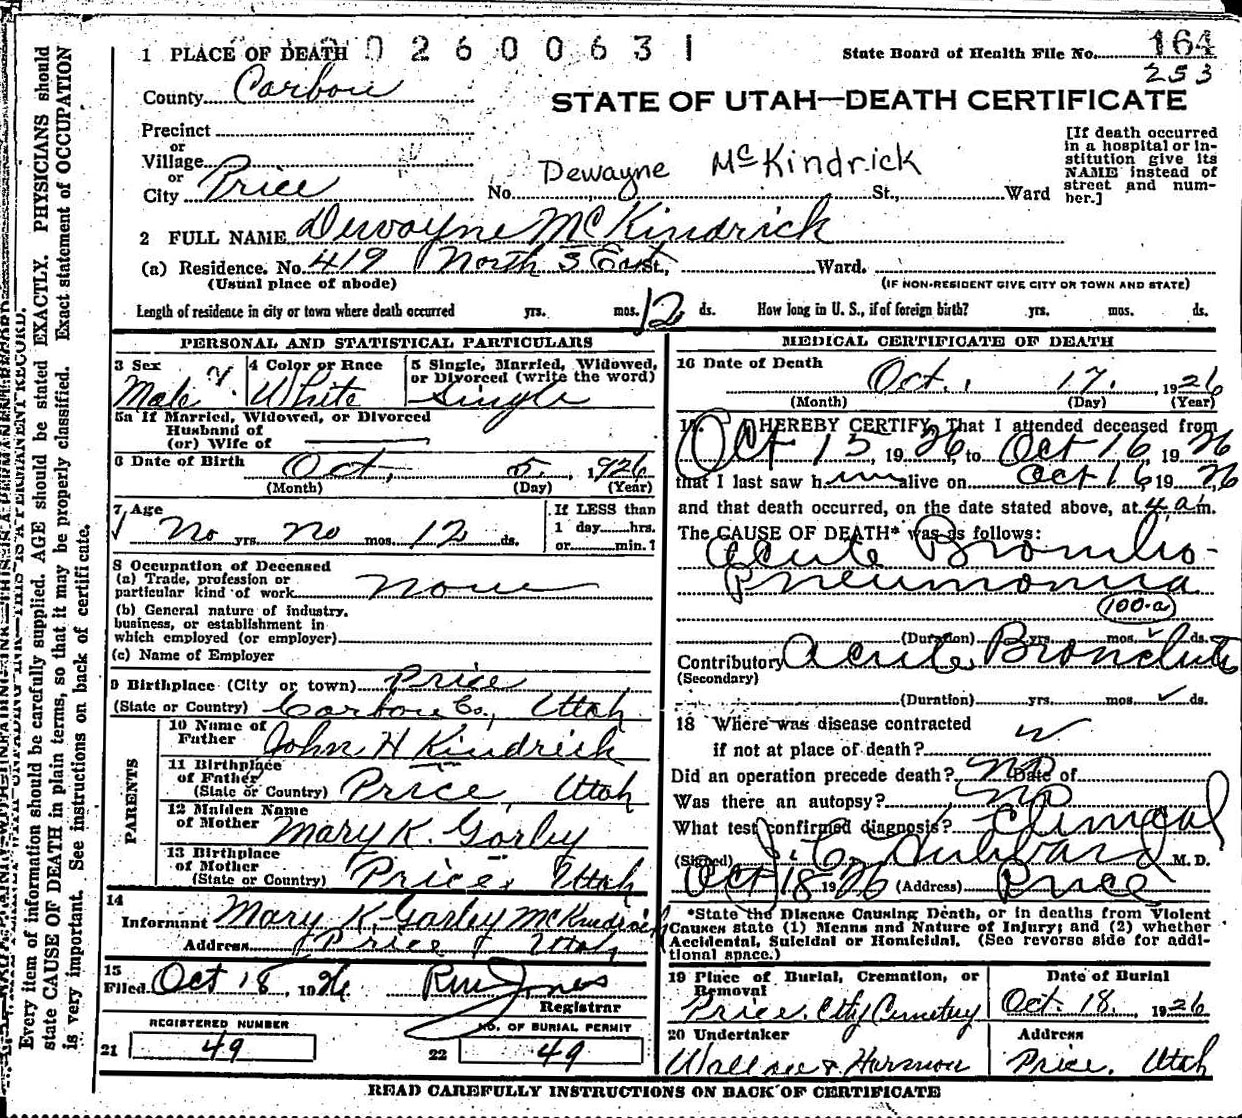 Every item of information should be carefully supplied. AGE should be stated EXACTLY. PHYSICIANS should
state CAUSE OF DEATH in plain terms, so that it may be properly classified. Exact statement of OCCUPATION
is very important. See instructions on back of certificate.
1 PLACE OF DEATH 0 2 6 0 0 6 3 1
State Board of Health File No. 164
253
County Carbon
STATE OF UTAH—DEATH CERTIFICATE
Precinct
or
Village
or
City Price
No. Dewayne McKindrick St., Ward
[If death occurred
in a hospital or in-
stitution give its
NAME instead of
street and num-
ber.]
2 FULL NAME Dewayne McKindrick
(a) Residence. No. 419 North 5 East, Ward.
(Usual place of abode)
(IF NON-RESIDENT GIVE CITY OR TOWN AND STATE)
Length of residence in city or town where death occurred yrs. mos. 12 ds. How long in U. S., if of foreign birth? yrs. mos. ds.
PERSONAL AND STATISTICAL PARTICULARS
3 Sex
Male
4 Color or Race
White
5 Single, Married, Widowed,
or Divorced (write the word)
Single
5a If Married, Widowed, or Divorced
Husband of
(or) Wife of
6 Date of Birth Oct. 5, 1926
(Month) (Day) (Year)
7 Age
No yrs. No mos. 12 ds.
If LESS than
1 day hrs.
or min.?
8 Occupation of Deceased
(a) Trade, profession or
particular kind of work None
(b) General nature of industry,
business, or establishment in
which employed (or employer)
(c) Name of Employer
9 Birthplace (City or town) Price
(State or Country) Carbon Co., Utah
PARENTS
10 Name of
Father John H Kindrick
11 Birthplace
of Father
(State or Country) Price, Utah
12 Maiden Name
of Mother Mary K. Gorley
13 Birthplace
of Mother
(State or Country) Price, Utah
14
Informant Mary K. Gorley McKindrick
Address Price Utah
15
Filed Oct 18, 1926 Jones
Registrar
REGISTERED NUMBER
21 49
NO. OF BURIAL PERMIT
22 49
MEDICAL CERTIFICATE OF DEATH
16 Date of Death
Oct. 17, 1926
(Month) (Day) (Year)
17. I HEREBY CERTIFY, That I attended deceased from
Oct 15, 1926, to Oct 16 1926
that I last saw him alive on Oct 16, 1926
and that death occurred, on the date stated above, at 4 a.m.
The CAUSE OF DEATH* was as follows:
Acute Broncho-
Pneumonia
100-a
(Duration) yrs. mos. ds.
Contributory Acute Bronchitis
(Secondary)
(Duration) yrs. mos. ds.
18 Where was disease contracted
if not at place of death?
Did an operation precede death? No Date of
Was there an autopsy? No
What test confirmed diagnosis? Clinical
(Signed) J. C. Hubbard M. D.
Oct 18 1926 (Address) Price
*State the Disease Causing Death, or in deaths from Violent
Causes state (1) Means and Nature of Injury; and (2) whether
Accidental, Suicidal or Homicidal. (See reverse side for addi-
tional space.)
19 Place of Burial, Cremation, or
Removal
Price City Cemetery
Date of Burial
Oct. 18, 1926
20 Undertaker
Wallace & Harmon
Address
Price, Utah
READ CAREFULLY INSTRUCTIONS ON BACK OF CERTIFICATE